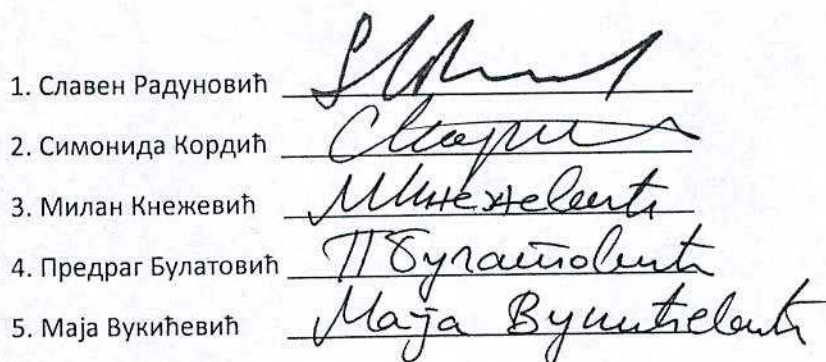 1. Славен Радуновић
2. Симонида Кордић
3. Милан Кнежевић МКнежевић
4. Предраг Булатовић ПБулатовић
5. Маја Вукићевић Маја Вукићевић